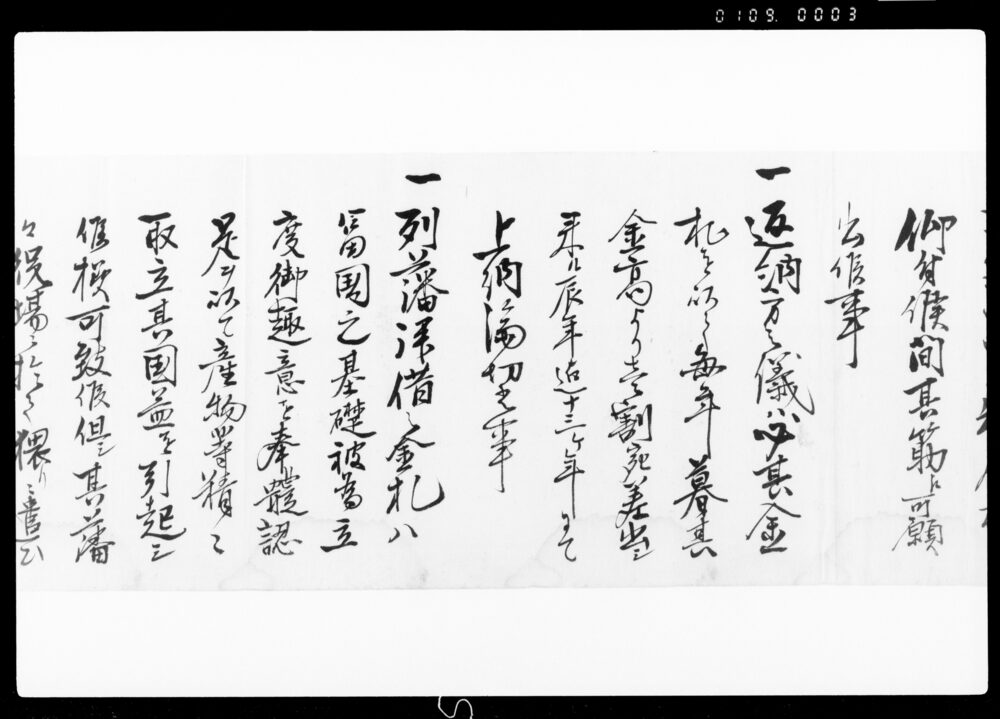 0109. 0003
仰付候間其筋ニ可願
出候事
一返納方之儀ハ必其金
札を以て毎年暮其
金高より壱割宛差出シ
来ル辰年迄十三ヶ年ニて
上納済切之事
一列藩拝借之金札ハ
富国之基礎被為立
度御趣意を奉體認
是ヲ以て産物等精々
取立其国益を引起シ
候様可致候但シ其藩
々役場ニおゐて猥りニ遣込